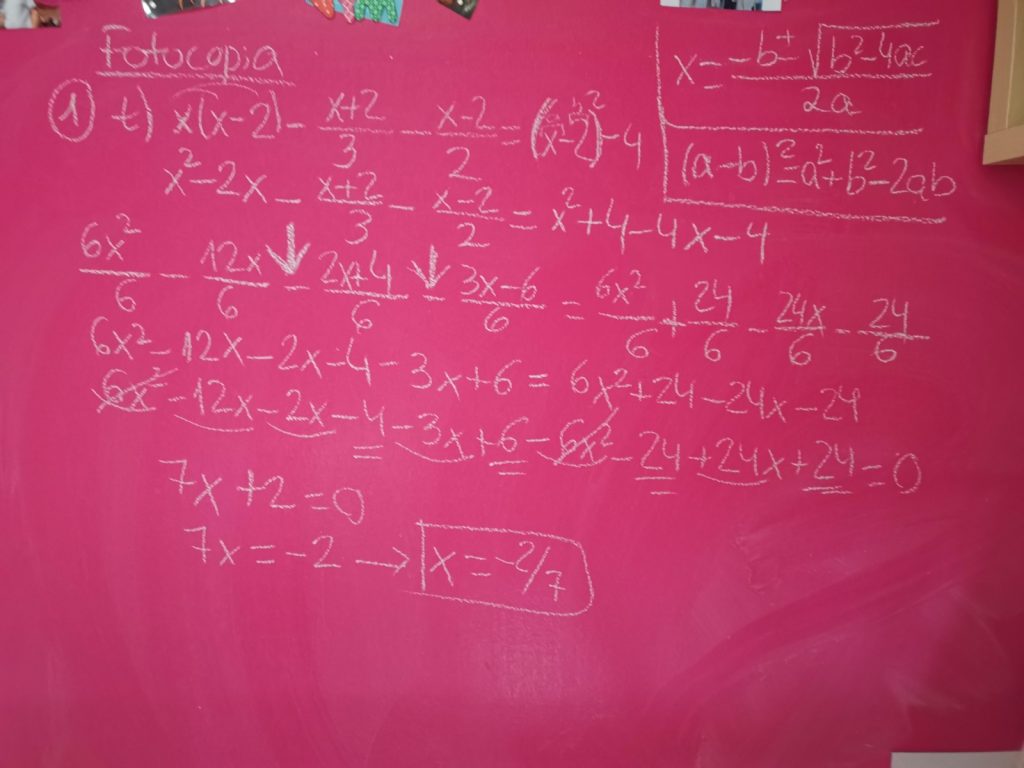 Fotocopia
① t) x(x-2) - x+2/3 - x-2/2 = (x-2)² - 4
x² - 2x - x+2/3 - x-2/2 = x² + 4 - 4x - 4
6x²/6 - 12x/6 - 2x+4/6 - 3x-6/6 = 6x²/6 + 24/6 - 24x/6 - 24/6
6x² - 12x - 2x - 4 - 3x + 6 = 6x² + 24 - 24x - 24
6x² - 12x - 2x - 4 - 3x + 6 - 6x² - 24 + 24x + 24 = 0
7x + 2 = 0
7x = -2 → x = -2/7
x = -b ± √b²-4ac / 2a
(a-b)² = a² + b² - 2ab